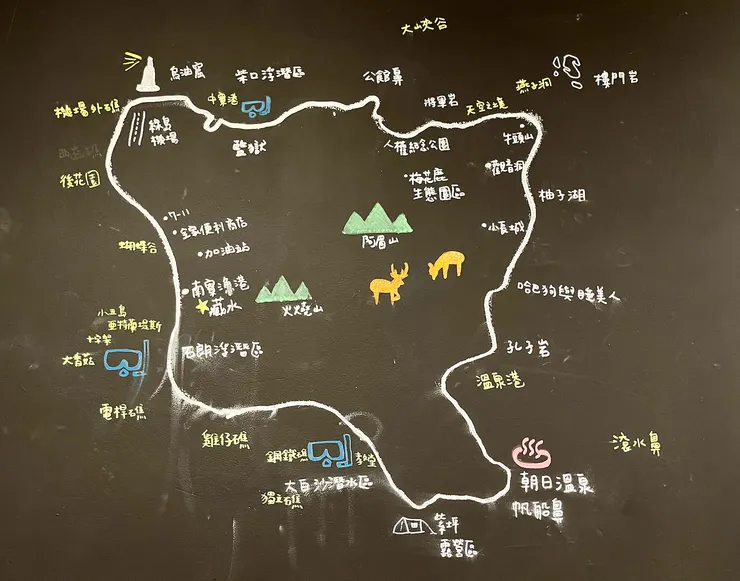 大峽谷
烏油窟
柴口浮潛區
公館鼻
燕子洞
樓門岩
機場外礁
中寮港
將軍岩
天空之境
綠島
機場
監獄
人權紀念公園
牛頭山
後花園
梅花鹿
生態園區
觀音洞
柚子湖
7-11
全家便利商店
小長城
蝴蝶谷
加油站
阿眉山
南寮漁港
藏水
火燒山
哈巴狗與睡美人
小丑島
亞特蘭堤斯
十字架
大香菇
石朗浮潛區
孔子岩
溫泉港
電桿礁
雞仔礁
鋼鐵礁
教堂
滾水鼻
大白沙潛水區
獨立礁
朝日溫泉
帆船鼻
紫坪
露營區